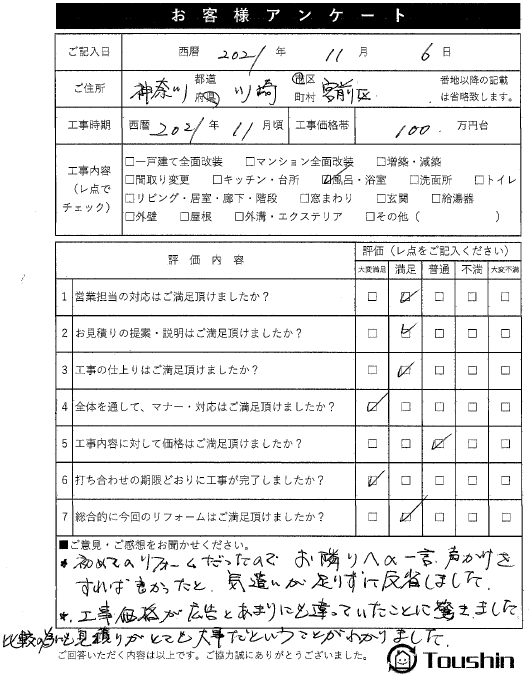 お客様アンケート
ご記入日 西暦 2021 年 11 月 6 日
ご住所 神奈川 都道府県 川崎 市区町村 宮前区 番地以降の記載は省略致します。
工事時期 西暦 2021 年 11 月頃 工事価格帯 100 万円台
工事内容（レ点でチェック）
□一戸建て全面改装 □マンション全面改装 □増築・減築
□間取り変更 □キッチン・台所 ☑風呂・浴室 □洗面所 □トイレ
□リビング・居室・廊下・階段 □窓まわり □玄関 □給湯器
□外壁 □屋根 □外溝・エクステリア □その他（ ）
評価内容 評価（レ点をご記入ください）
大変満足 満足 普通 不満 大変不満
1 営業担当の対応はご満足頂けましたか？ □ ☑ □ □ □
2 お見積りの提案・説明はご満足頂けましたか？ □ ☑ □ □ □
3 工事の仕上りはご満足頂けましたか？ □ ☑ □ □ □
4 全体を通して、マナー・対応はご満足頂けましたか？ ☑ □ □ □ □
5 工事内容に対して価格はご満足頂けましたか？ □ □ ☑ □ □
6 打ち合わせの期限どおりに工事が完了しましたか？ ☑ □ □ □ □
7 総合的に今回のリフォームはご満足頂けましたか？ □ ☑ □ □ □
■ご意見・ご感想をお聞かせください。
* 初めてのリフォームだったので お隣りへの一言、声かけを
すればよかったと、気遣いが足りずに反省しました。
* 工事価格が広告とあまりにも違っていたことに驚きました
比較の為にも見積りがとても大事だということがわかりました。
ご回答いただく内容は以上です。ご協力誠にありがとうございました。
Toushin